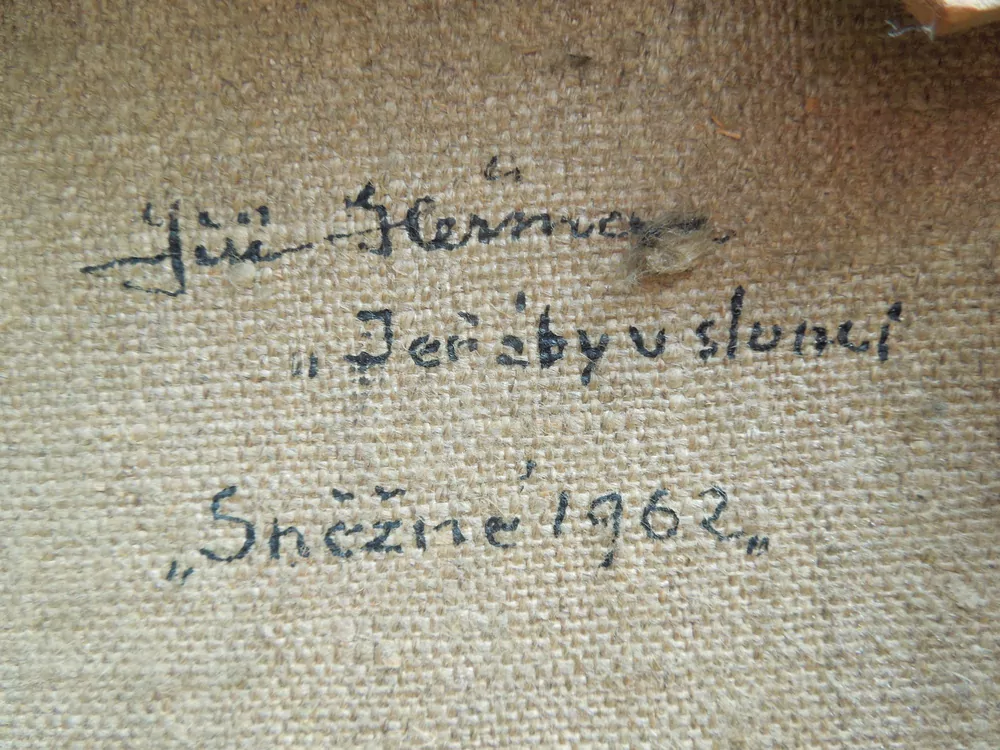 Jiří Heřma
„Jeřáby v slunci
„Sněžné 1962„